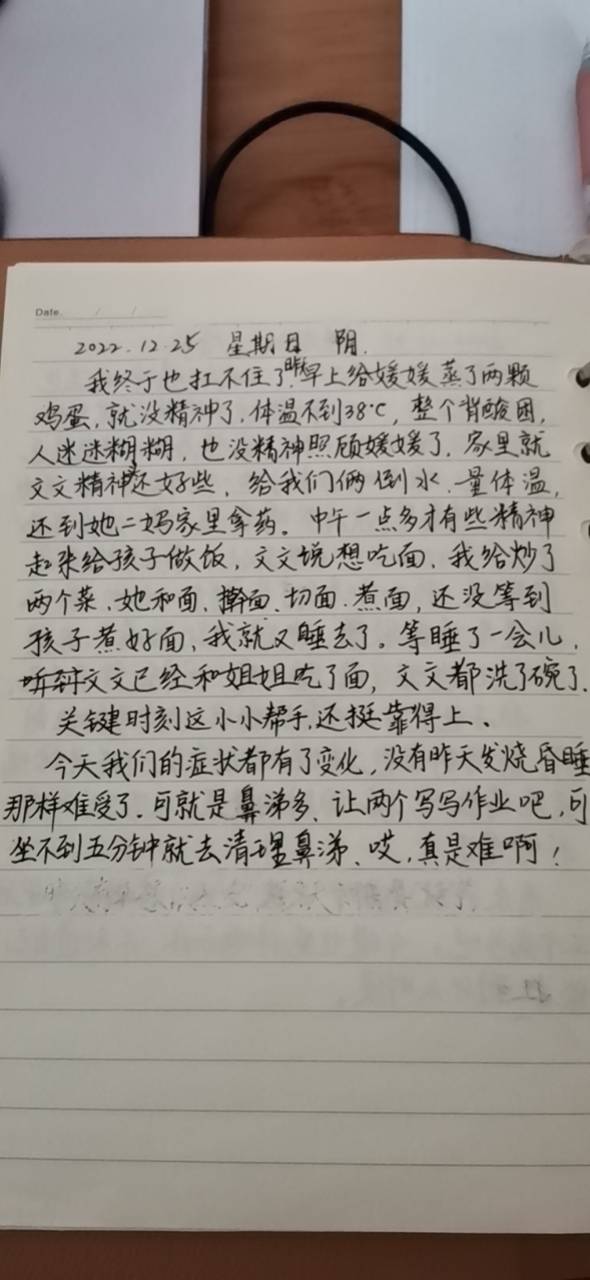 Date. / /
2022.12.25 星期日 阴.
我终于也扛不住了.昨早上给媛媛蒸了两颗
鸡蛋,就没精神了,体温不到38℃,整个背酸困,
人迷迷糊糊,也没精神照顾媛媛了.家里就
文文精神还好些,给我们俩倒水.量体温,
还到她二妈家里拿药。中午一点多才有些精神
起来给孩子做饭,文文说想吃面.我给炒了
两个菜.她和面.擀面.切面.煮面,还没等到
孩子煮好面,我就又睡去了。等睡了一会儿,
听到文文已经和姐姐吃了面,文文都洗了碗了.
关键时刻这小小帮手,还挺靠得上、
今天我们的症状都有了变化,没有昨天发烧昏睡
那样难受了.可就是鼻涕多、让两个写写作业吧,可
坐不到五分钟就去清理鼻涕、哎,真是难啊!